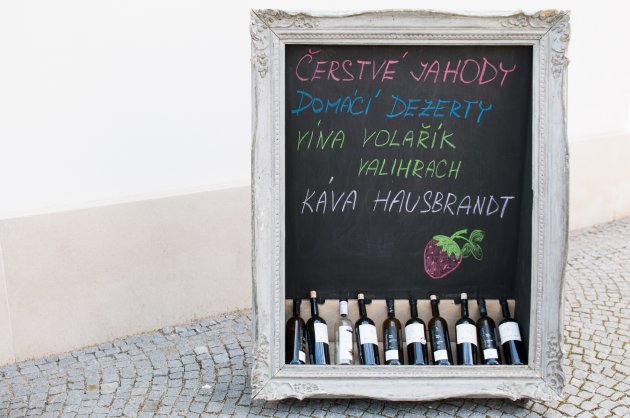 ČERSTVÉ JAHODY
DOMÁCÍ DEZERTY
VÍNA VOLAŘÍK
VALIHRACH
KÁVA HAUSBRANDT